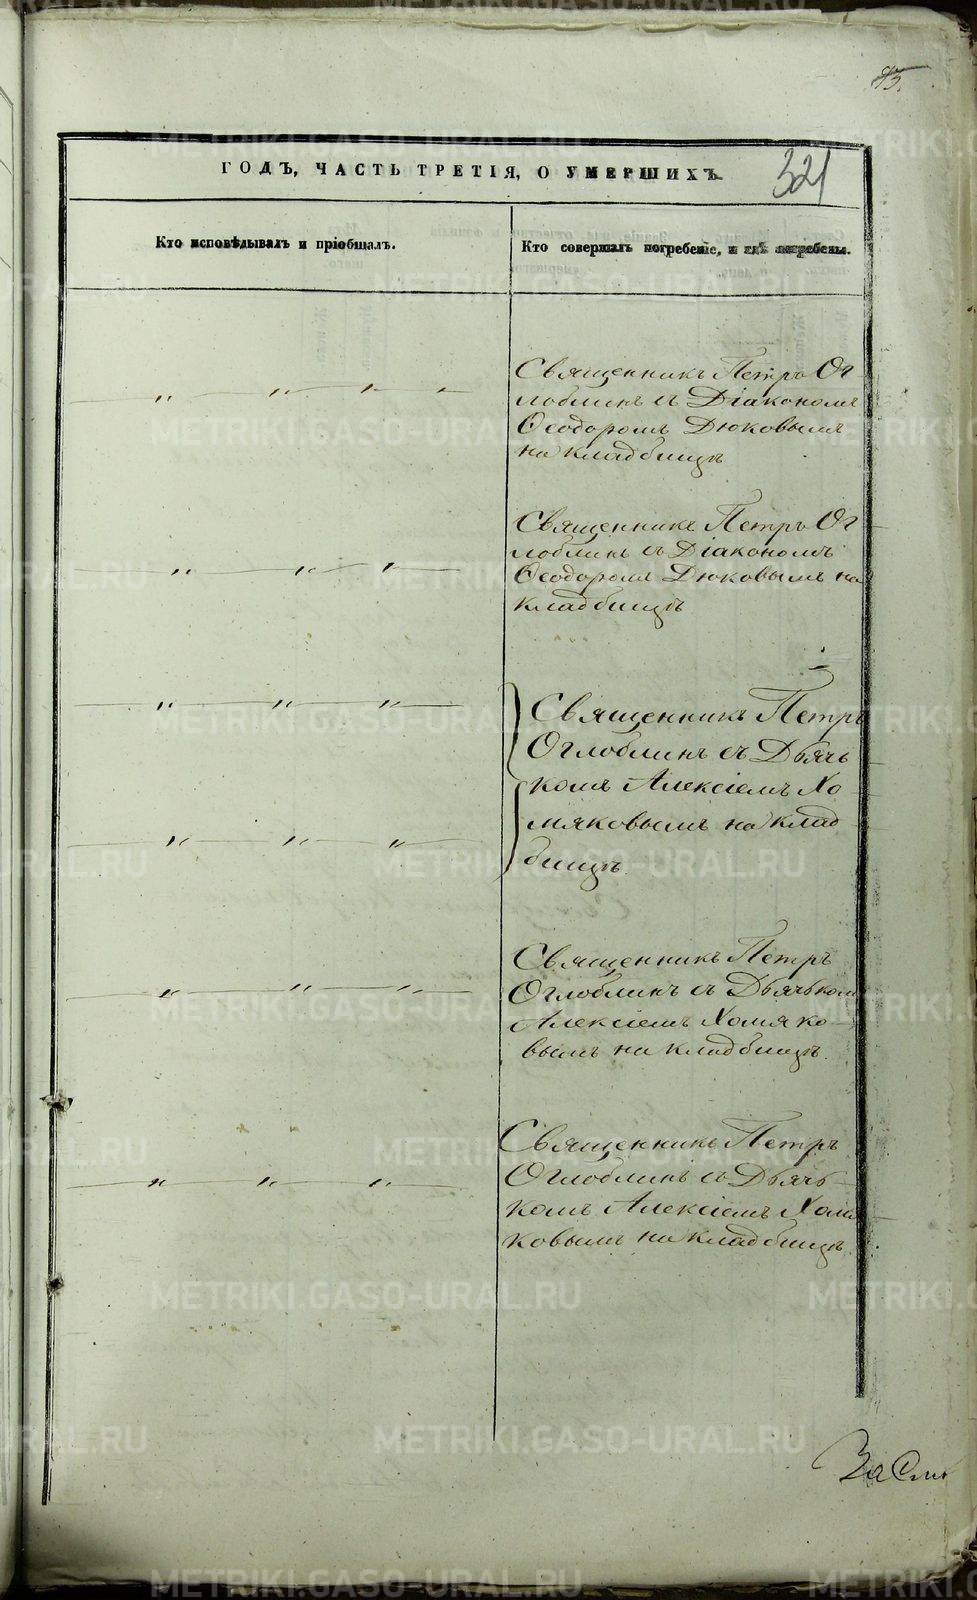 321
ГОДЪ, ЧАСТЬ ТРЕТІЯ, О УМЕРШИХЪ.
Кто исповѣдывалъ и пріобщалъ.
Кто совершалъ погребеніе, и гдѣ погребены.
Священникъ Петръ Ог
лоблинъ съ Діакономъ
Ѳеодоромъ Дюковымъ
на кладбищѣ
Священникъ Петръ Ог
лоблинъ съ Діакономъ
Ѳеодоромъ Дюковымъ на
кладбищѣ
Священникъ Петръ
Оглоблинъ съ Дьячь
комъ Алексіемъ Хо
мяковымъ на клад
бищѣ
Священникъ Петръ
Оглоблинъ съ Дьячькомъ
Алексіемъ Хомяко
вымъ на кладбищѣ.
Священникъ Петръ
Оглоблинъ съ Дьячь
комъ Алексіемъ Хомя
ковымъ на кладбищѣ
METRIKI.GASO-URAL.RU